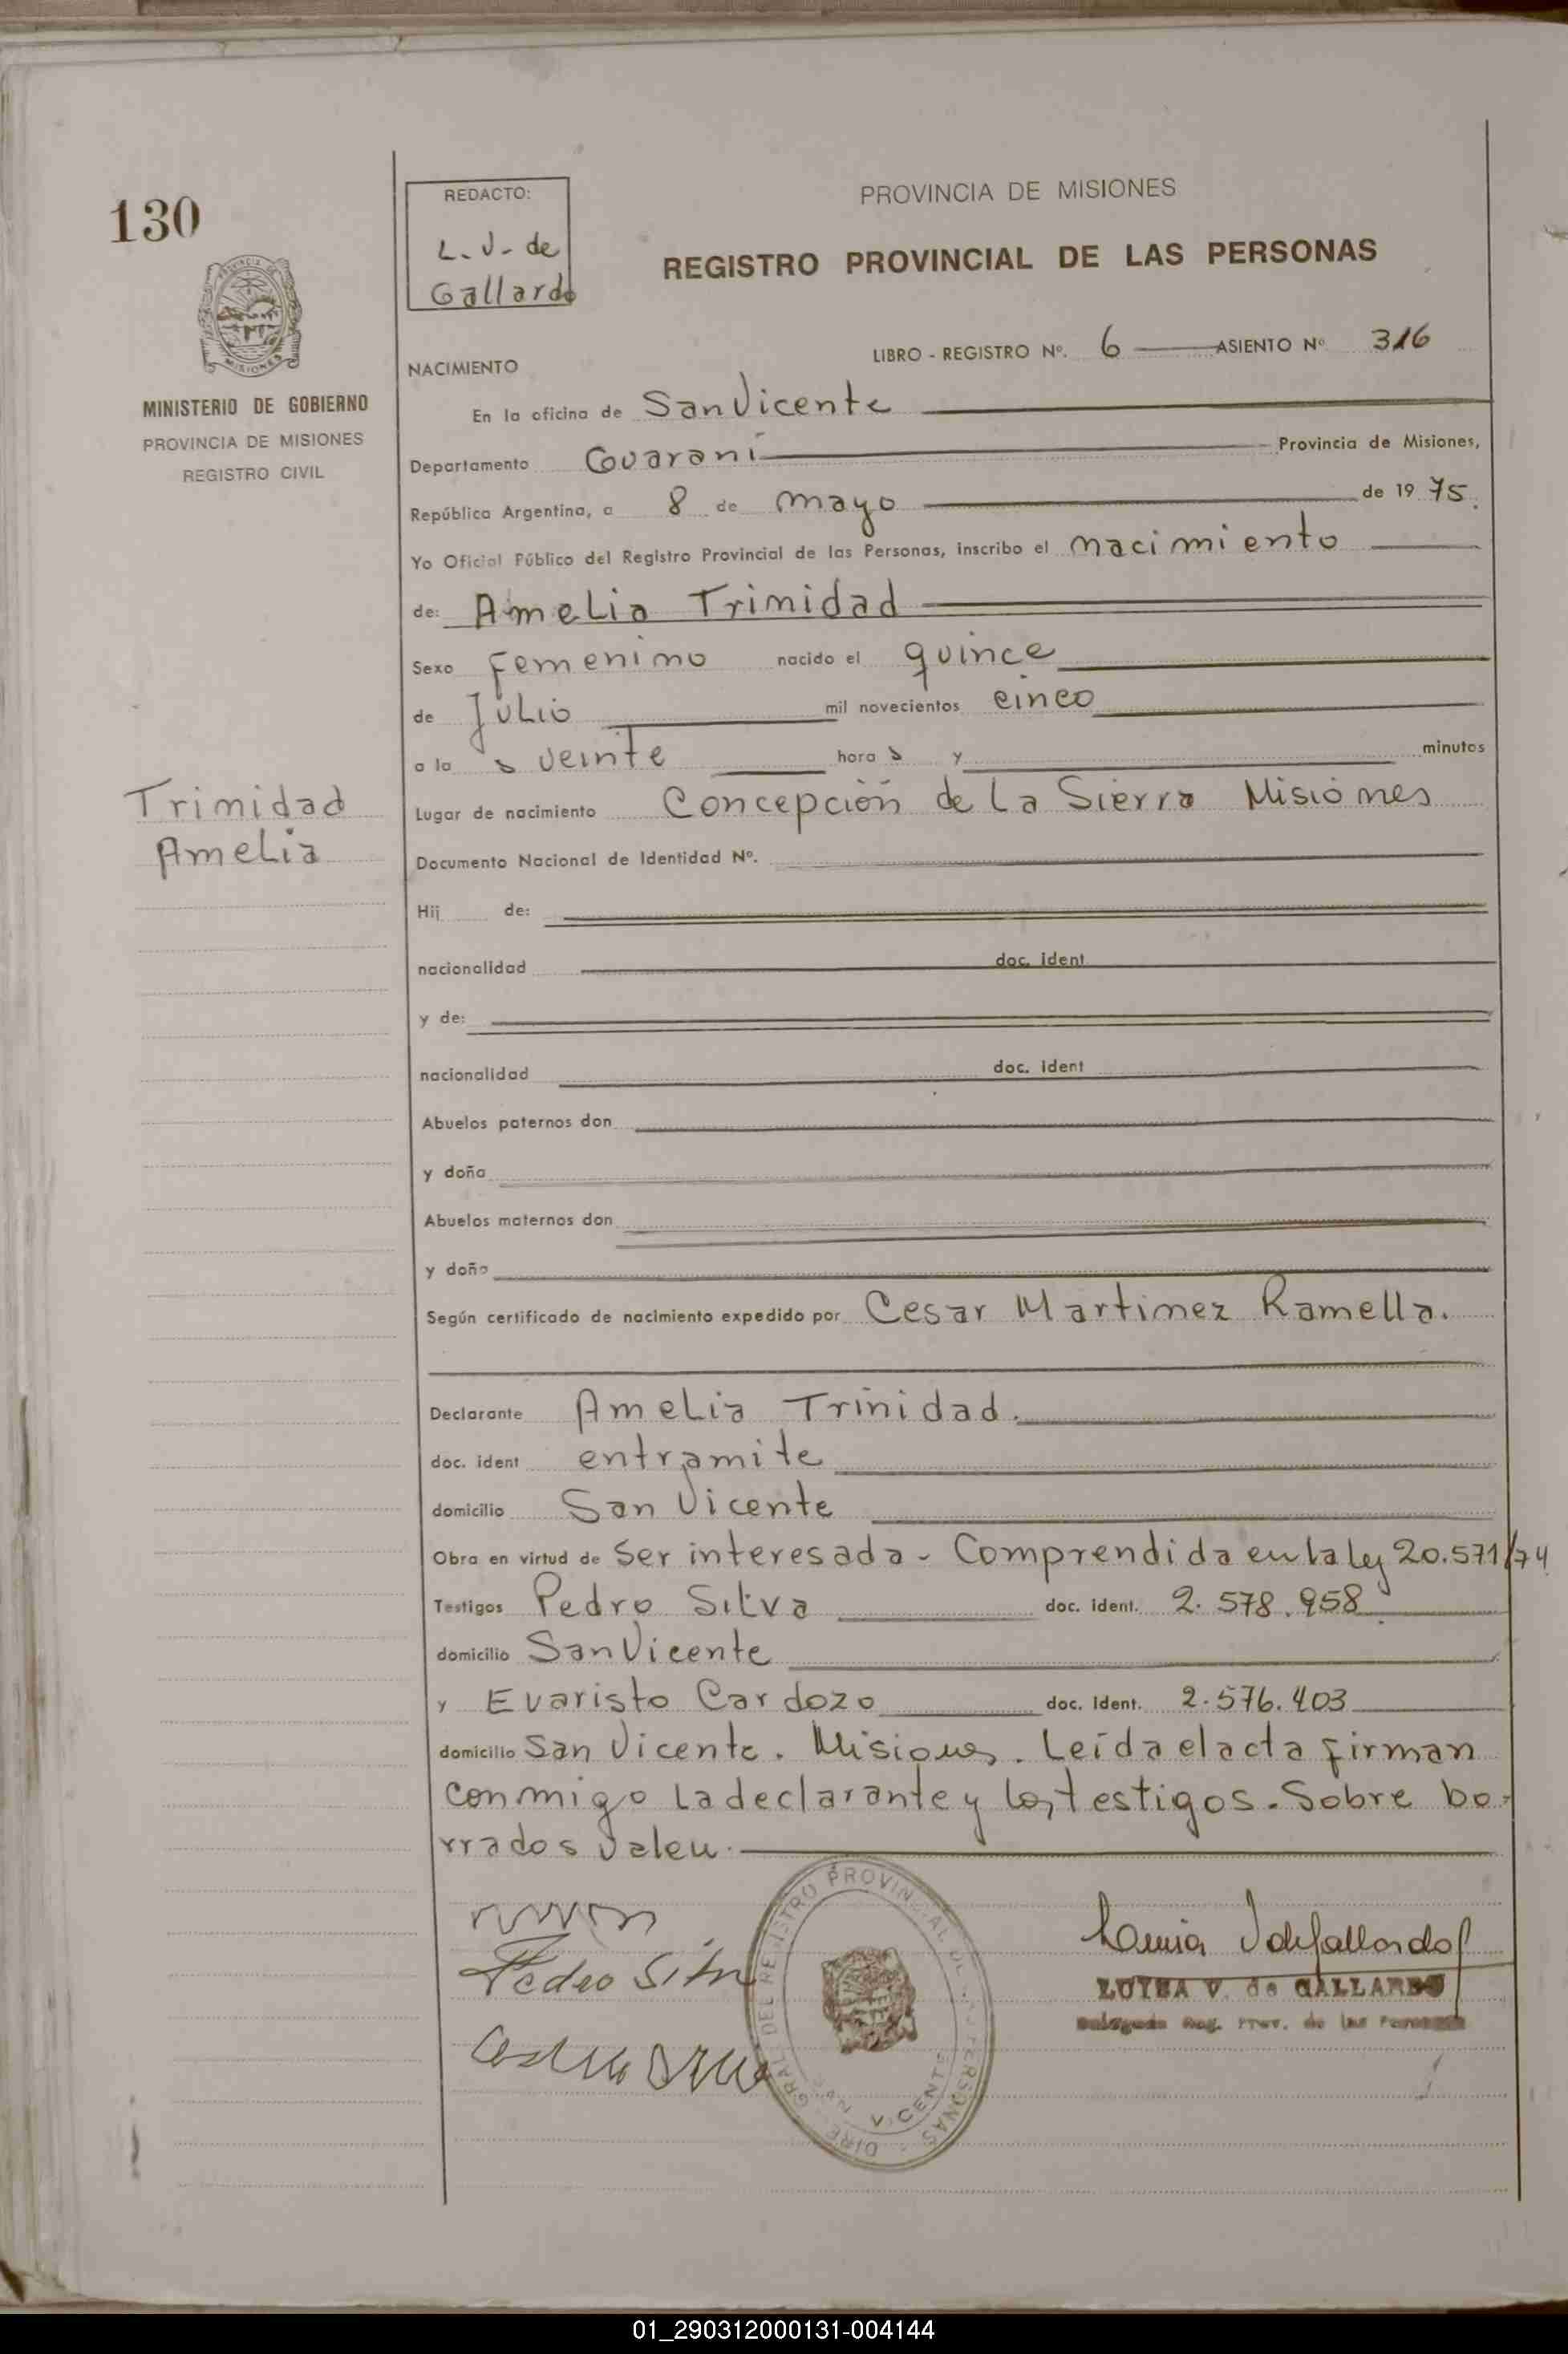 130
REDACTO:
L. V. de
Gallardo
PROVINCIA DE MISIONES
REGISTRO PROVINCIAL DE LAS PERSONAS
MINISTERIO DE GOBIERNO
PROVINCIA DE MISIONES
REGISTRO CIVIL
LIBRO - REGISTRO Nº. 6 ASIENTO Nº 316
NACIMIENTO
En la oficina de San Vicente
Departamento Guaraní Provincia de Misiones,
República Argentina, a 8 de mayo de 1975.
Yo Oficial Público del Registro Provincial de las Personas, inscribo el nacimiento
de: Amelia Trinidad
Sexo Femenino nacido el quince
de Julio mil novecientos cinco
a la s veinte hora s y minutos
Trinidad
Amelia
Lugar de nacimiento Concepción de La Sierra Misiones
Documento Nacional de Identidad Nº.
Hij de:
nacionalidad doc. ident
y de:
nacionalidad doc. ident
Abuelos paternos don
y doña
Abuelos maternos don
y doña
Según certificado de nacimiento expedido por Cesar Martinez Ramella.
Declarante Amelia Trinidad.
doc. ident entramite
domicilio San Vicente
Obra en virtud de Ser interesada - Comprendida en la ley 20.571/74
Testigos Pedro Silva doc. ident. 2.578.958
domicilio San Vicente
y Evaristo Cardozo doc. ident. 2.576.403
domicilio San Vicente. Misiones. Leída el acta firman
conmigo La declarante y los testigos. Sobre bo-
rrados valen.
Pedro Silva
LUISA V. de GALLARDO
Delegada Reg. Prov. de las Personas
DIRE. GRAL DEL REGISTRO PROVINCIAL DE LAS PERSONAS
SAN VICENTE
01_290312000131-004144